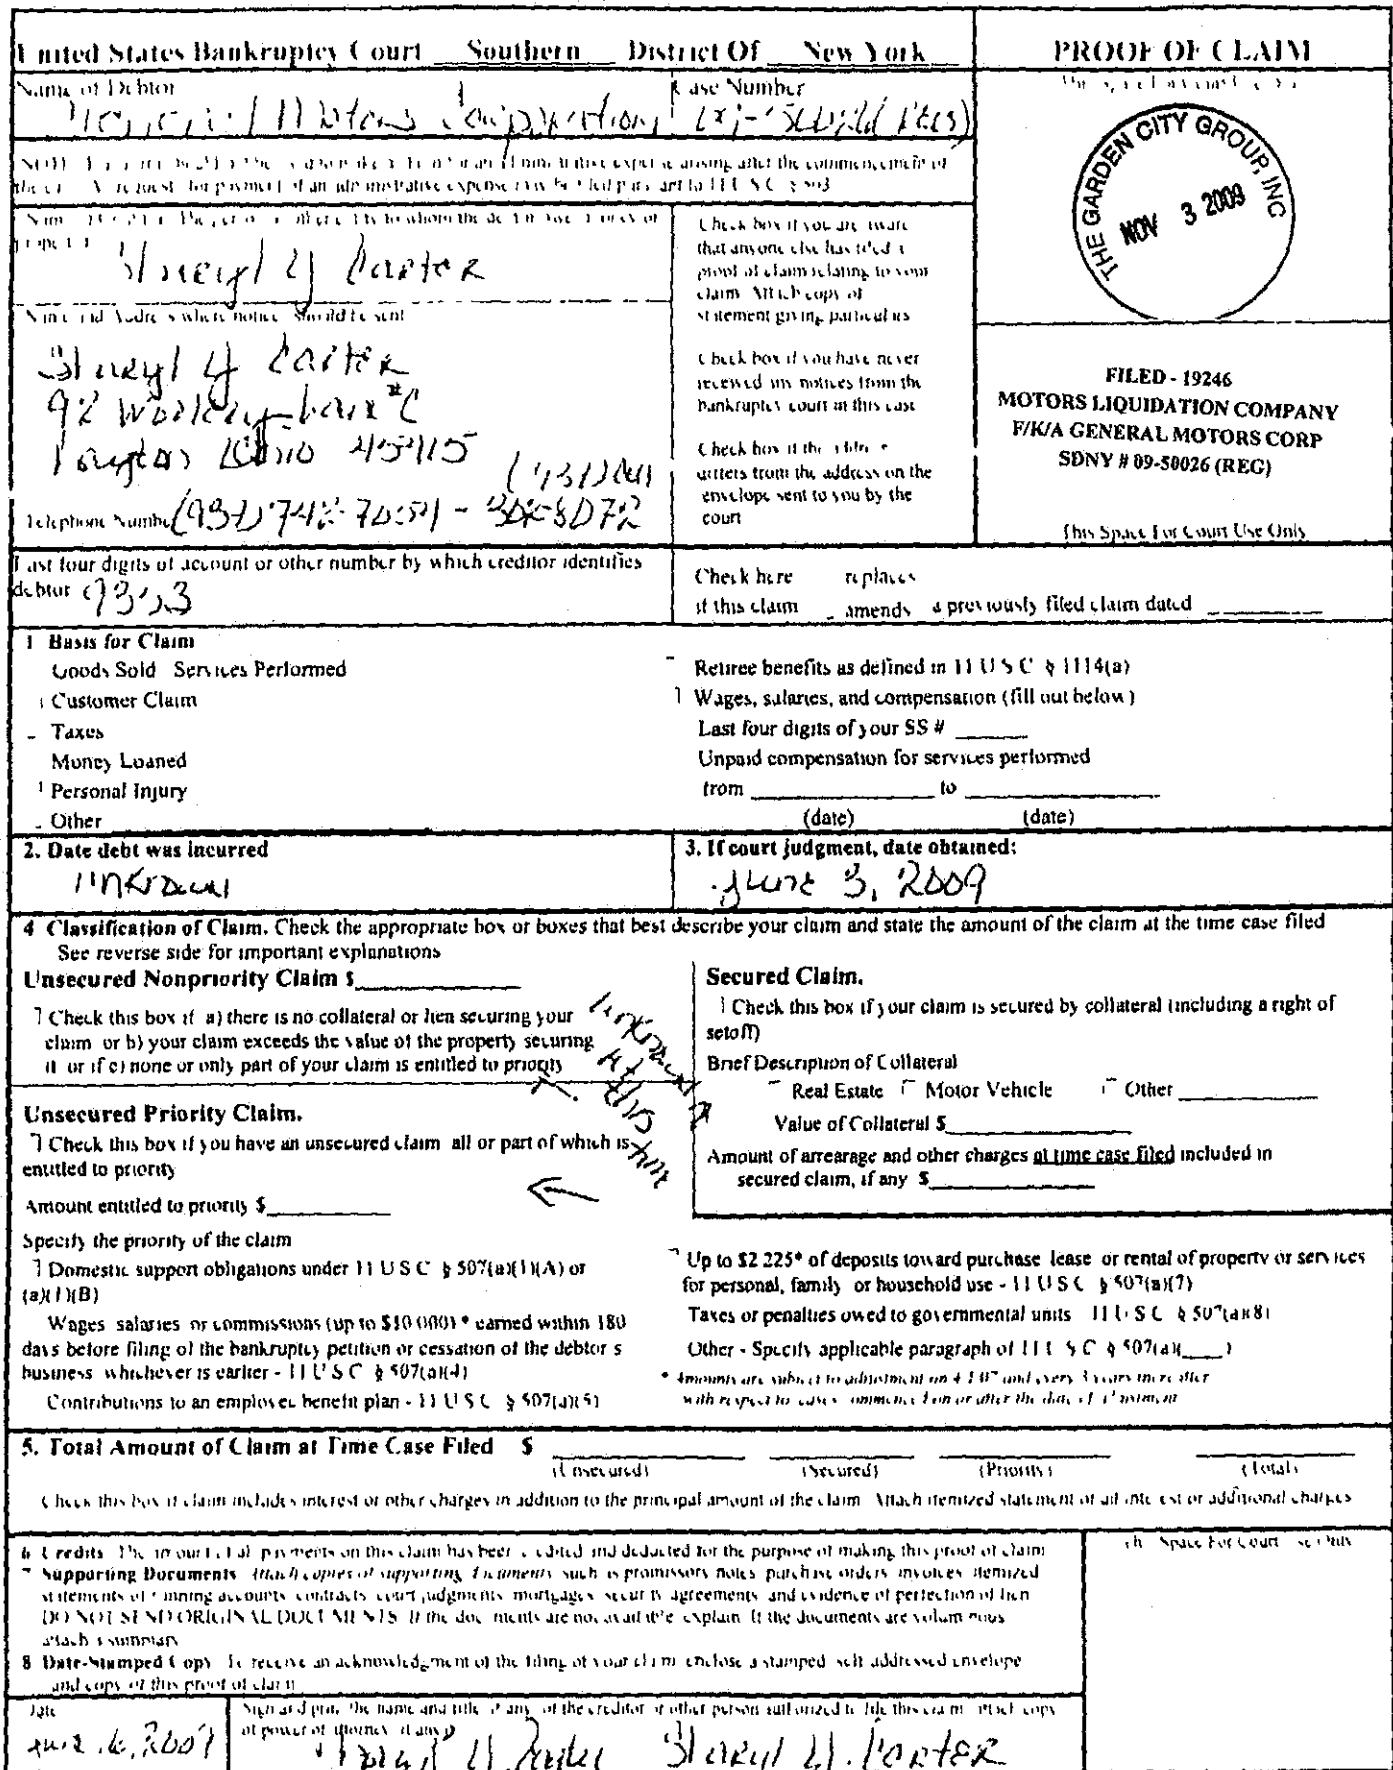 United States Bankruptcy Court Southern District Of New York
PROOF OF CLAIM
Name of Debtor
Case Number
General Motors Corporation
THE GARDEN CITY GROUP, INC
NOV 3 2009
Sheryl Y Carter
Name and Address where notices should be sent
Sheryl Y Carter
92
Dayton Ohio 45415
Telephone Number
Check box if you are aware
that anyone else has filed a
proof of claim relating to your
claim Attach copy of
statement giving particulars
Check box if you have never
received any notices from the
bankruptcy court in this case
Check box if the address
differs from the address on the
envelope sent to you by the
court
FILED - 19246
MOTORS LIQUIDATION COMPANY
F/K/A GENERAL MOTORS CORP
SDNY # 09-50026 (REG)
This Space For Court Use Only
Last four digits of account or other number by which creditor identifies
debtor
Check here replaces
if this claim amends a previously filed claim dated
1 Basis for Claim
Goods Sold Services Performed
Customer Claim
Taxes
Money Loaned
Personal Injury
Other
Retiree benefits as defined in 11 U S C § 1114(a)
Wages, salaries, and compensation (fill out below)
Last four digits of your SS #
Unpaid compensation for services performed
from to
(date) (date)
2. Date debt was incurred
Unknown
3. If court judgment, date obtained:
June 3, 2009
4 Classification of Claim. Check the appropriate box or boxes that best describe your claim and state the amount of the claim at the time case filed
See reverse side for important explanations
Unsecured Nonpriority Claim $
Check this box if a) there is no collateral or lien securing your
claim or b) your claim exceeds the value of the property securing
it or if c) none or only part of your claim is entitled to priority
unknown at this time
Unsecured Priority Claim.
Check this box if you have an unsecured claim all or part of which is
entitled to priority
Amount entitled to priority $
Specify the priority of the claim
Domestic support obligations under 11 U S C § 507(a)(1)(A) or
(a)(1)(B)
Wages salaries or commissions (up to $10 000) * earned within 180
days before filing of the bankruptcy petition or cessation of the debtor s
business whichever is earlier - 11 U S C § 507(a)(4)
Contributions to an employee benefit plan - 11 U S C § 507(a)(5)
Secured Claim.
Check this box if your claim is secured by collateral (including a right of
setoff)
Brief Description of Collateral
Real Estate Motor Vehicle Other
Value of Collateral $
Amount of arrearage and other charges at time case filed included in
secured claim, if any $
Up to $2 225* of deposits toward purchase lease or rental of property or services
for personal, family or household use - 11 U S C § 507(a)(7)
Taxes or penalties owed to governmental units 11 U S C § 507(a)(8)
Other - Specify applicable paragraph of 11 U S C § 507(a)(____)
* Amounts are subject to adjustment on 4 1 07 and every 3 years thereafter
with respect to cases commenced on or after the date of adjustment
5. Total Amount of Claim at Time Case Filed $
(Unsecured) (Secured) (Priority) (Total)
Check this box if claim includes interest or other charges in addition to the principal amount of the claim Attach itemized statement of all interest or additional charges
6 Credits The amount of all payments on this claim has been credited and deducted for the purpose of making this proof of claim
7 Supporting Documents Attach copies of supporting documents such as promissory notes purchase orders invoices itemized
statements of running accounts contracts court judgments mortgages security agreements and evidence of perfection of lien
DO NOT SEND ORIGINAL DOCUMENTS If the documents are not available explain If the documents are voluminous
attach a summary
8 Date-Stamped Copy To receive an acknowledgment of the filing of your claim enclose a stamped self addressed envelope
and copy of this proof of claim
Date
Sign and print the name and title if any of the creditor or other person authorized to file this claim attach copy
of power of attorney if any
Sheryl Y. Carter Sheryl Y. Carter